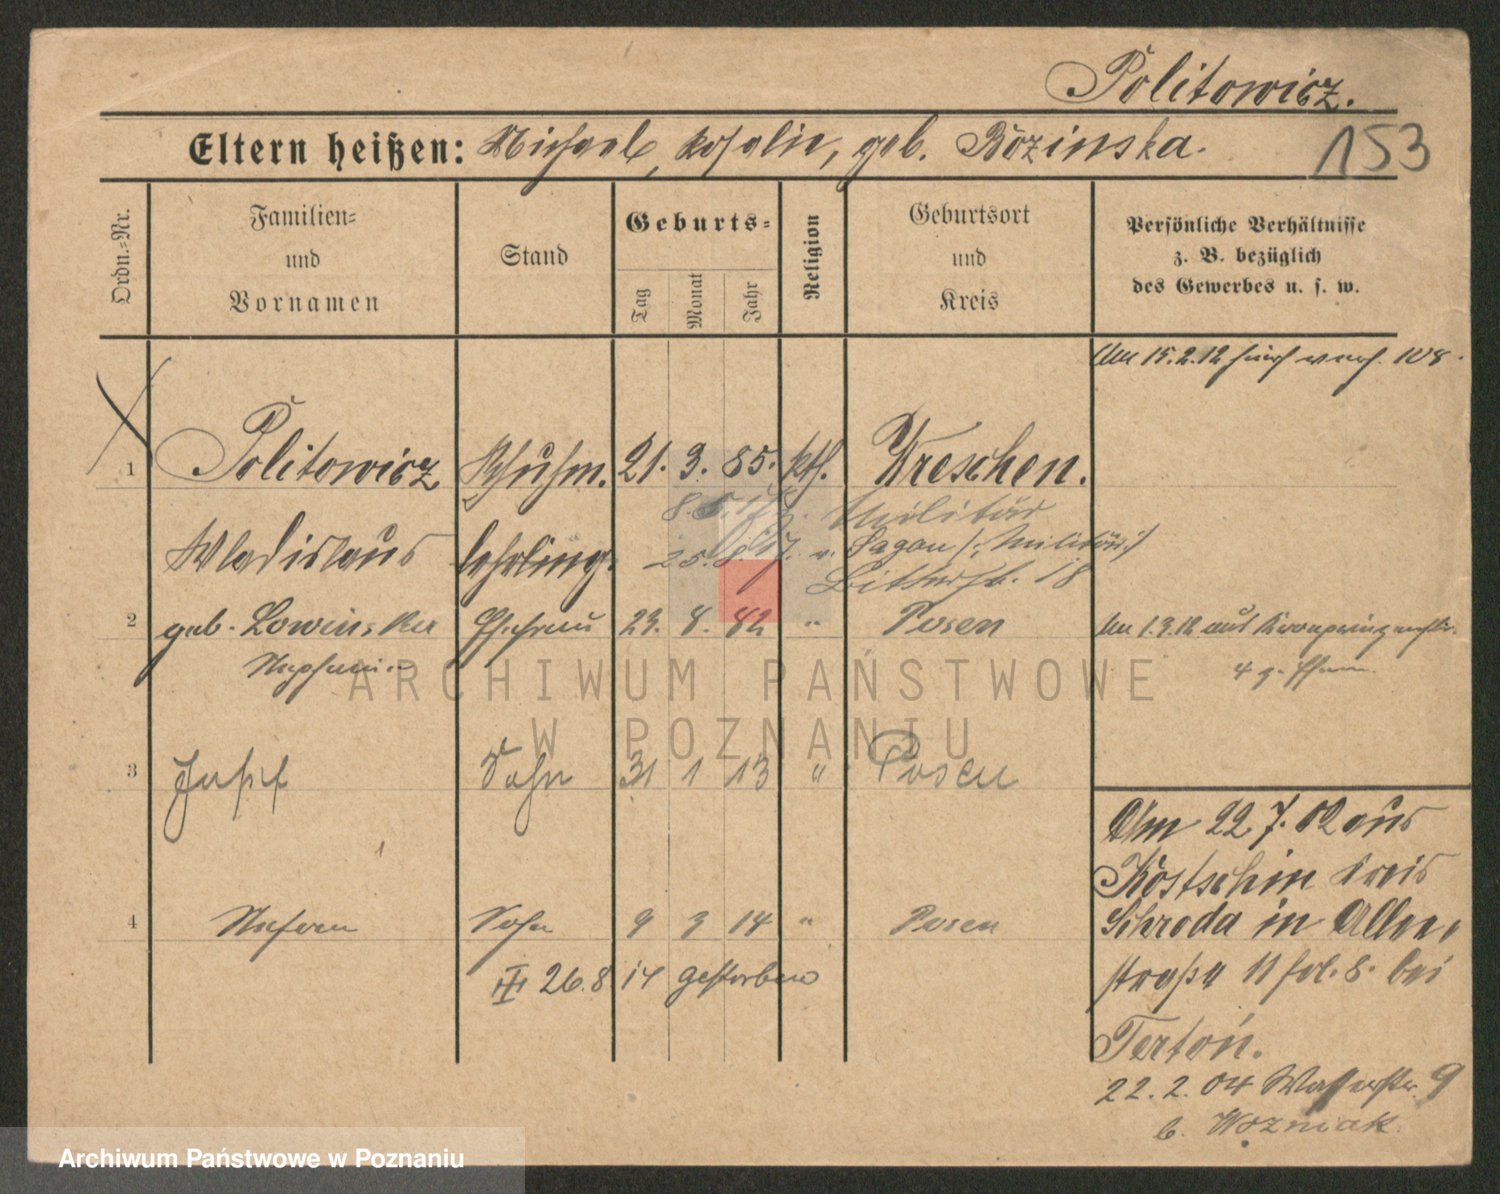 Politowicz.
Eltern heißen: Michael, Rosalie, geb. Rozinska.
153
Ordn.-Nr.
Familien-
und
Vornamen
Stand
Geburts-
Tag
Monat
Jahr
Religion
Geburtsort
und
Kreis
Persönliche Verhältnisse
z. B. bezüglich
des Gewerbes u. s. w.
Am 15.2.12 108.
1 Politowicz Schuhm. 21. 3. 85. kth. Wreschen.
Militär
Wladislaus lehrling.
25. 8. 17. v. Sagan /: Militär :/
18
2 geb. Lowinska Ehefrau 23. 8. 82 " Posen
Am 1.3.12 aus
3 Josef Sohn 31 1 13 " Posen
4 Stefan Sohn 9 3 14 " Posen
26.8 14 gestorben
Am 22.7.02 aus
Kostschin Kreis
Schroda in Allee,
straße 11 bei
Tertoń.
22.2.04 Wasserstr. 9
b. Wozniak.
ARCHIWUM PAŃSTWOWE
W POZNANIU
Archiwum Państwowe w Poznaniu